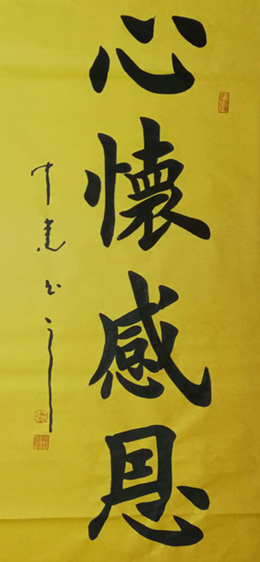 心懷感恩